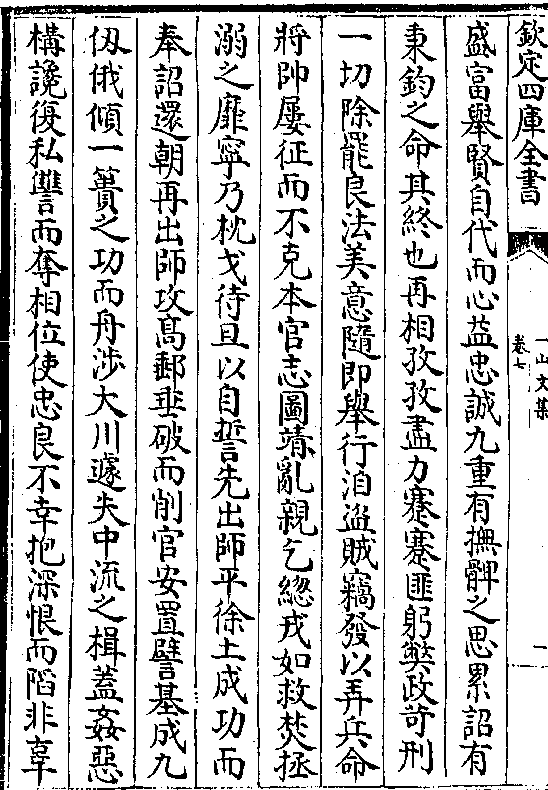 欽定四庫全書
一山文集
卷七
一
盛富舉賢自代而心益忠誠九重有撫髀之思累詔有
秉鈞之命其終也再相孜孜盡力蹇蹇匪躬獘政苛刑
一切除罷良法美意隨即舉行洎盗賊竊發以弄兵命
將帥屢征而不克本官志圖靖亂親乞總戎如救焚拯
溺之靡寧乃枕戈待旦以自誓先出師平徐土成功而
奉詔還朝再出師攻髙郵垂破而削官安置譬基成九
仭俄傾一簣之功而舟涉大川遽失中流之楫蓋姦惡
構讒復私讐而奪相位使忠良不幸抱深恨而陷非辜